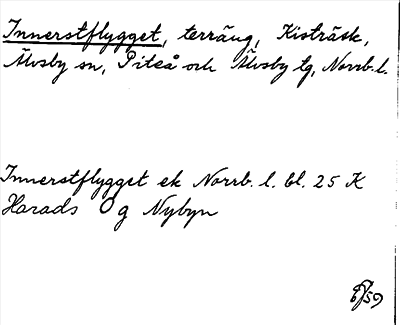 Innerstflygget, terräng, Kisträsk,
Älvsby sn, Piteå och Älvsby tg, Norrb. l.
Innerstflygget ek Norrb. l. bl. 25 K
Harads Ö g Nybyn
59